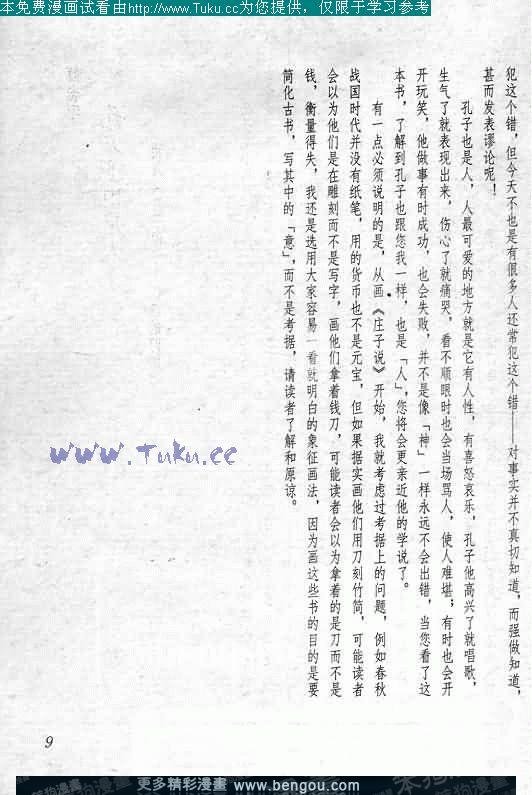 本免费漫画试看由http://www.Tuku.cc为您提供，仅限于学习参考
犯这个错，但今天不也是有很多人还常犯这个错——对事实并不真切知道，而强做知道，
甚而发表谬论呢！
孔子也是人，人最可爱的地方就是它有人性，有喜怒哀乐，孔子他高兴了就唱歌，
生气了就表现出来，伤心了就痛哭，看不顺眼时也会当场骂人，使人难堪；有时也会开
开玩笑，他做事有时成功，也会失败，并不是像「神」一样永远不会出错，当您看了这
本书，了解到孔子也跟您我一样，也是「人」，您将会更亲近他的学说了。
有一点必须说明的是，从画《庄子说》开始，我就考虑过考据上的问题，例如春秋
战国时代并没有纸笔，用的货币也不是元宝，但如果据实画他们用刀刻竹简，可能读者
会以为他们是在雕刻而不是写字，画他们拿着钱刀，可能读者会以为拿着的是刀而不是
钱，衡量得失，我还是选用大家容易一看就明白的象征画法，因为画这些书的目的是要
简化古书，写其中的「意」，而不是考据，请读者了解和原谅。
www.Tuku.cc
9
更多精彩漫畫 www.bengou.com